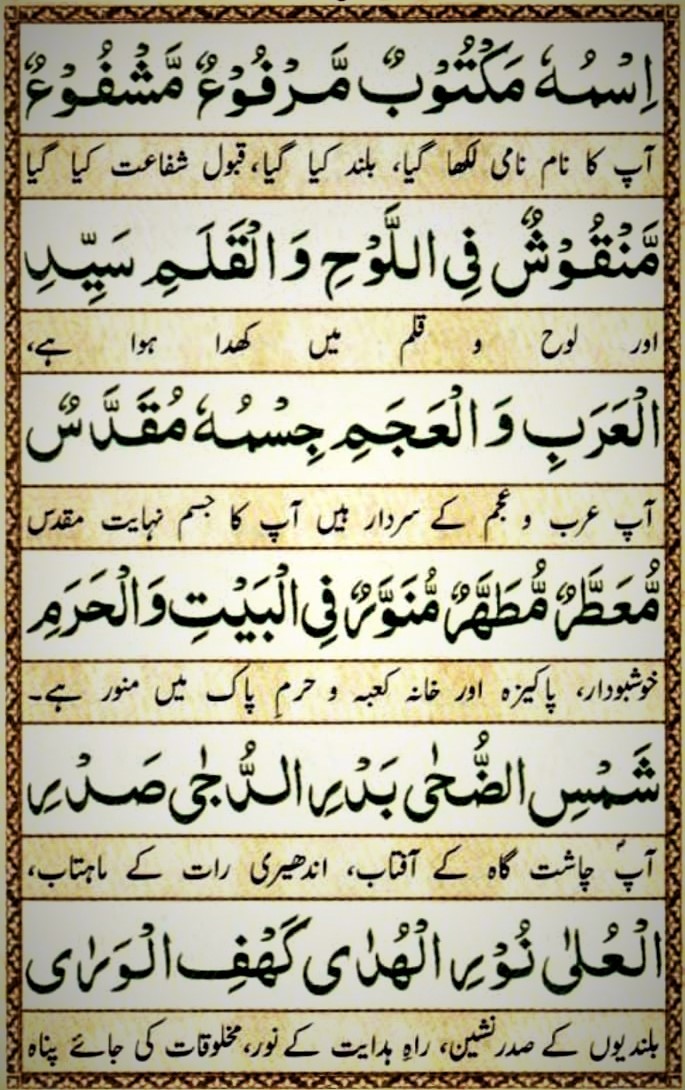 اِسْمُهٗ مَكْتُوْبٌ مَّرْفُوْعٌ مَّشْفُوْعٌ
آپ کا نام نامی لکھا گیا، بلند کیا گیا، قبول شفاعت کیا گیا
مَّنْقُوْشٌ فِی اللَّوْحِ وَ الْقَلَمِ سَیِّدِ
اور لوح و قلم میں کھدا ہوا ہے،
الْعَرَبِ وَ الْعَجَمِ جِسْمُهٗ مُقَدَّسٌ
آپ عرب و عجم کے سردار ہیں آپ کا جسم نہایت مقدس
مُّعَطَّرٌ مُّطَهَّرٌ مُّنَوَّرٌ فِی الْبَیْتِ وَ الْحَرَمِ
خوشبودار، پاکیزہ اور خانہ کعبہ و حرمِ پاک میں منور ہے۔
شَمْسِ الضُّحٰی بَدْرِ الدُّجٰی صَدْرِ
آپؐ چاشت گاہ کے آفتاب، اندھیری رات کے ماہتاب،
الْعُلٰی نُوْرِ الْهُدٰی كَهْفِ الْوَرٰی
بلندیوں کے صدر نشین، راہِ ہدایت کے نور، مخلوقات کی جائے پناہ